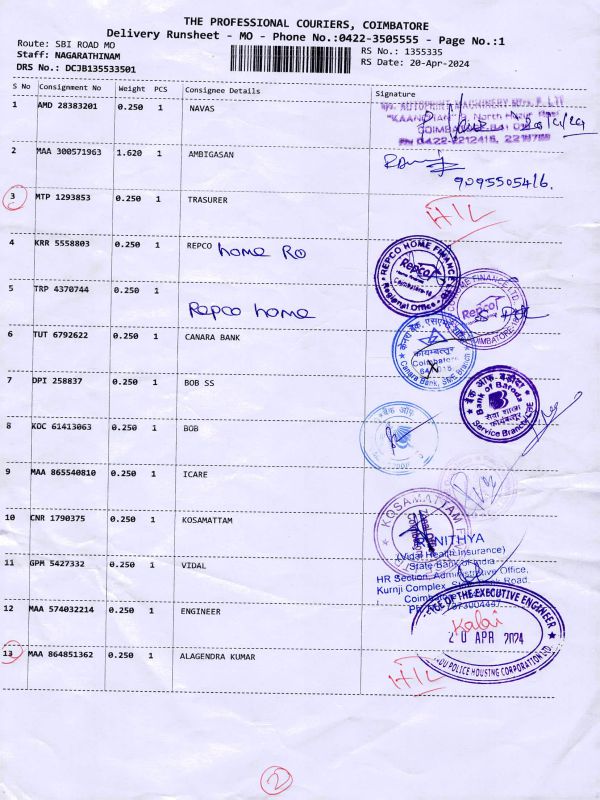 THE PROFESSIONAL COURIERS, COIMBATORE
Delivery Runsheet - MO - Phone No.:0422-3505555 - Page No.:1
Route: SBI ROAD MO
Staff: NAGARATHINAM
DRS No.: DCJB135533501
RS No.: 1355335
RS Date: 20-Apr-2024
S No Consignment No Weight PCS Consignee Details Signature
1 AMD 28383201 0.250 1 NAVAS
COIMBATORE
PH 0422-2212416,
2 MAA 300571963 1.620 1 AMBIGASAN
9095505416.
3 MTP 1293853 0.250 1 TRASURER
H/L
4 KRR 5558803 0.250 1 REPCO home RO
REPCO HOME FINANCE
Repco
Regional Office
5 TRP 4370744 0.250 1
Repco home
Repco
6 TUT 6792622 0.250 1 CANARA BANK
कोयम्बत्तूर
Coimbatore
Canara Bank, SME Branch
7 DPI 258837 0.250 1 BOB SS
बैंक ऑफ़ बड़ौदा
Bank of Baroda
सेवा शाखा
Service Branch
8 KOC 61413063 0.250 1 BOB
9 MAA 865540810 0.250 1 ICARE
10 CNR 1790375 0.250 1 KOSAMATTAM
KOSAMATTAM
11 GPM 5427332 0.250 1 VIDAL
NITHYA
(Vidal Health Insurance)
State Bank of India
HR Section, Administrative Office,
Kurnji Complex, State Bank Road.
12 MAA 574032214 0.250 1 ENGINEER
OFFICE OF THE EXECUTIVE ENGINEER
Kalai
20 APR 2024
POLICE HOUSING CORPORATION LTD.
13 MAA 864851362 0.250 1 ALAGENDRA KUMAR
H/L
2